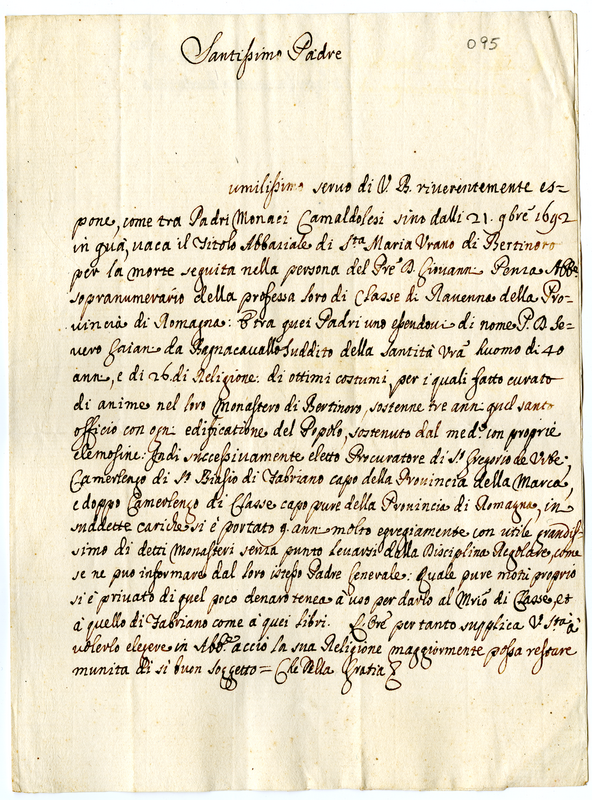 Santissimo Padre
095
umilissimo servo di V. B. riverentemente es=
pone, come tra Padri Monaci Camaldolesi sino dalli 21. 9bre 1692
in quà, vaca il Titolo Abbaziale di Sta Maria Urano di Bertinoro
per la morte seguita nella persona del Pre D. Giovann Ponza Abbe
sopranumerario della professa loro di Classe di Ravenna della Pro=
vincia di Romagna: tra quei Padri uno essendovi di nome P. D. Se=
vero da Bagnacavallo suddito della Santità Vra huomo di 40
ann, e di 26. di Religione: di ottimi costumi, per i quali fatto curato
di anime nel loro Monastero di Bertinoro, sostenne tre ann quel santo
officio con ogn edificatione del Popolo, sostenuto dal medo con proprie
elemosine: Indi successivamente eletto Procuratore di S. Gregorio de Urbe;
Camerlengo di S. Biasio di Fabriano capo della Provincia della Marca,
e doppo Camerlengo di Classe capo pure della Provincia di Romagna, in
suddette cariche si è portato 9. ann molto egregiamente con utile grandis=
simo di detti Monasteri senza punto levarsi dalla Disciplina Regolare, come
se ne puo informare dal loro istesso Padre Generale: Quale pure motu proprio
si è privato di quel poco denaro tenea à uso per darlo al Mrio di Classe, et
à quello di Fabriano come à quei libri. per tanto supplica V. Sta à
volerlo elegere in Abbe acciò la sua Religione maggiormente possa restare
munita di si buon soggetto = Che della Gratia